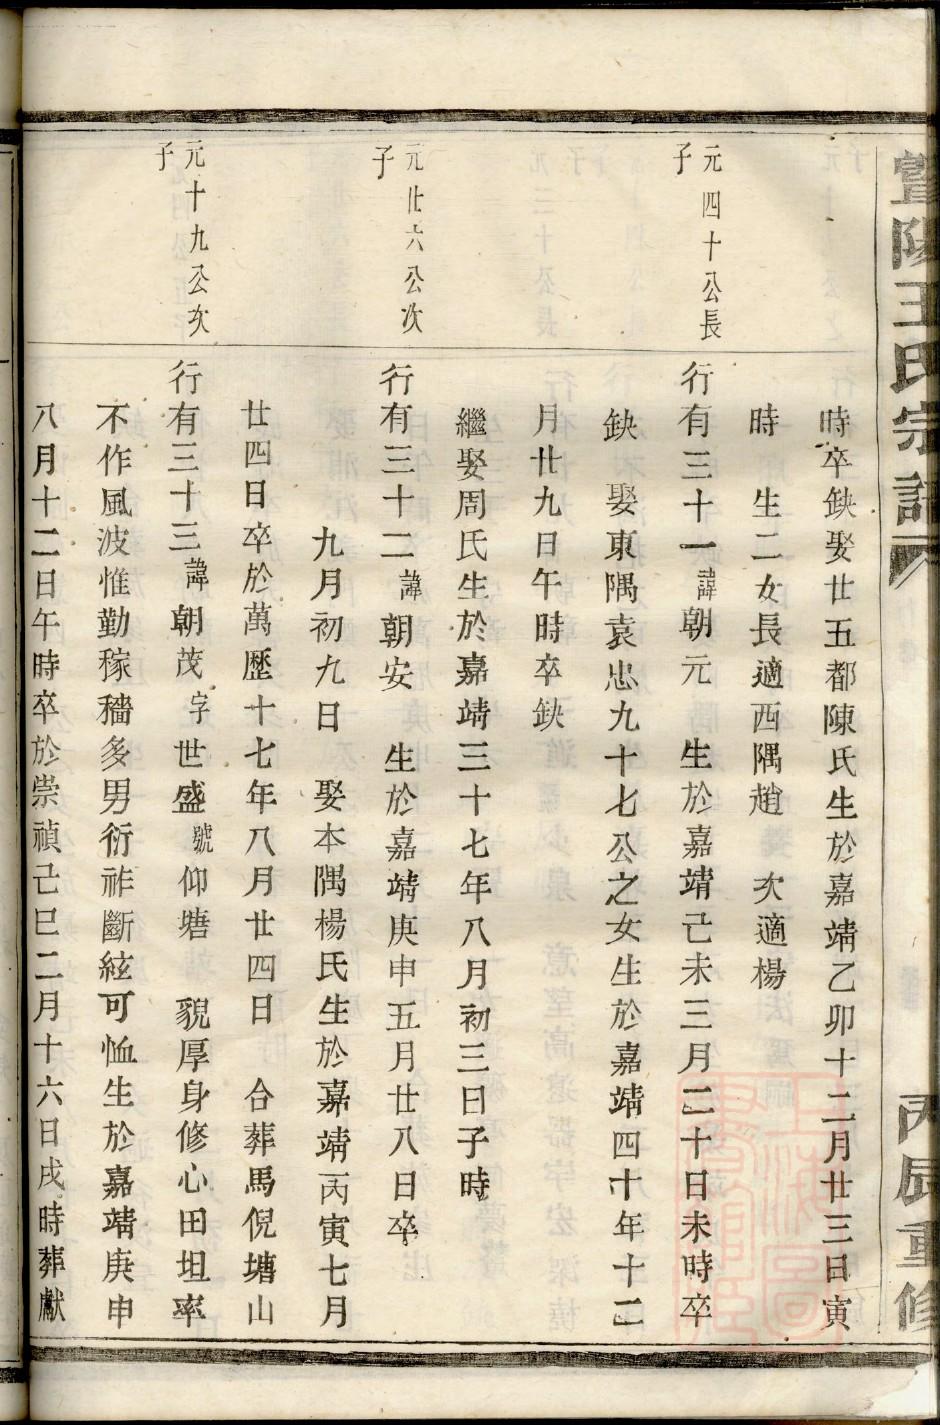 暨陽王氏宗譜
丙辰重修
時卒缺娶廿五都陳氏生於嘉靖乙卯十二月廿三日寅
時 生二女長適西隅趙 次適楊
元四十公長
子
行有三十一諱朝元 生於嘉靖己未三月二十日未時卒
缺 娶東隅袁忠九十七公之女生於嘉靖四十年十二
月廿九日午時卒缺
繼娶周氏生於嘉靖三十七年八月初三日子時
元廿六公次
子
行有三十二諱朝安 生於嘉靖庚申五月廿八日卒
九月初九日 娶本隅楊氏生於嘉靖丙寅七月
廿四日卒於萬歷十七年八月廿四日 合葬馬倪塘山
元十九公次
子
行有三十三諱朝茂字世盛號仰塘 貌厚身修心田坦率
不作風波惟勤稼穡多男衍祚斷絃可恤生於嘉靖庚申
八月十二日午時卒於崇禎己巳二月十六日戌時葬獻